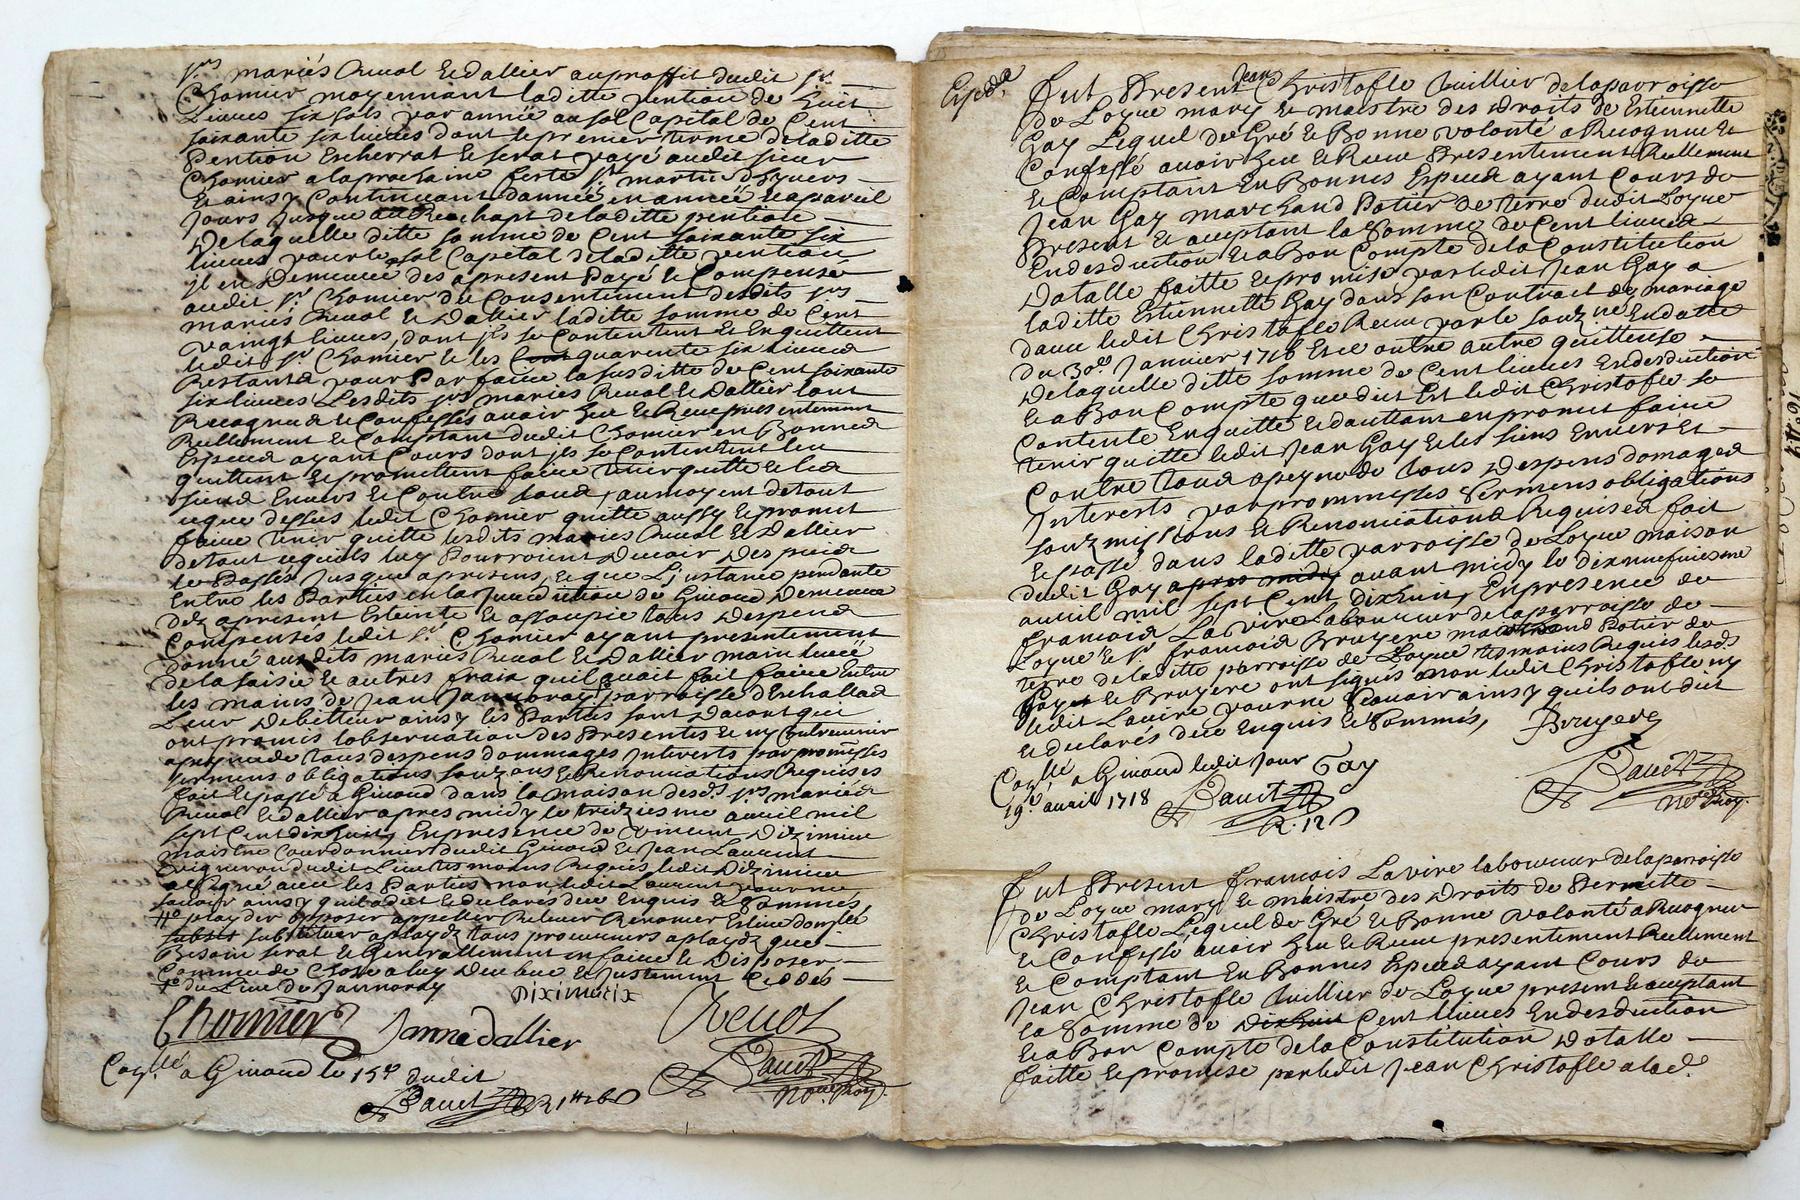 Srs mariés Reuol Et dallier au proffit dudit Sr
Chomier moyennant laditte pention de huit
Liures six sols par année au sol Capital de Cent
soixante six liures dont le premier terme de laditte
Pention Escherrat Et serat payé audit sieur
Chomier a la prochaine feste St martin dhyuers
Et ainsy Continuant dannée en année Et a pareil
Jours Jusque au Reachapt de laditte pention
De laquelle ditte somme de Cent soixante six
liures pour le sol Capetal de laditte pention
Il en Demeure des apresent Payé Et Compensé
audit Sr Chomier du Consentement desdits Srs
mariés Reuol Et Dallier laditte somme de Cent
vaingt liures, dont Jls se Contentent Et Enquittent
ledit Sr Chomier Et les Cent quarente six liures
Restants pour Parfaire la susditte de Cent soixante
six liures Lesdits Srs mariés Reuol Et Dallier lont
Recognus Et Confessés auoir heu Et Receu presentement
Reellement Et Comptant dudit Chomier en Bonnes
Especes ayant Cours dont Jls se Contentent Len
quittent Et promettent faire tenir quitte Et les
siens Enuers Et Contre tous, au moyent de tout
ceque dessus ledit Chomier quitte aussy Et promet
faire tenir quitte lesdits mariés Reuol Et Dallier
de tout cequils luy Pourroient Deuoir Des puis
le Passés Jusque apresens, Et que L'instance pendante
Entre les Parties en la Juridition de Giuord Demeure
dez apresent Esteinte Et assoupie tous Despens
Compensés ledit Sr Chomier ayant presentement
donné ausdits mariés Reuol Et Dallier main leuée
de la saisie Et autres fraix quil auait fait faire Entre
les mains de Jean Jannoray parroisse deschallas
Leur Debitteur ainsy les Parties sont Dacort qui
ont promis lobseruation des Presentes Et ny Contreuenir
apeyne de tous despens dommages Interests par promesses
sermens obligations souz ons Et Renonciations Requises
fait Et passé a Giuord dans la maison desds Srs mariés
Reuol Et dallier apres midy le treiziesme auril mil
sept Cent dix huit Enpresence de Vincent Dizimieu
maistre Courdonnier dudit Giuord Et Jean Laurent
Vigneron dudit Lieu tesmoins Requis ledit Dizimieu
a signé auec les Parties non ledit Laurent pour ne
scauoir ainsy quil a dit Et declarés due Enquis Et sommés,
playder opposer appeller Releuer Renoncer Eslire domille
subst substituer a playdz tous procureurs a playdz que
Besoin serat Et Generallement en faire Et Disposer
Comme de Chose a luy Deu bue Et Justement Ceddés
du Lieu de Jannoray
Diximieux
Chomier Janne dallier Reuol
Baudt
Nore Roy.
Conllé a Giuord le 15e dudit
Baudt
Expedé
Fut Present Jean Christofle Cuillier de la parroisse
de Loyre mary Et maistre des Droits de Estiennette
Gay Lequel de Gré Et Bonne volonté a Recognu Et
Confessé auoir heu Et Receu Presentement Reellement
Et Comptant En Bonnes Especes ayant Cours de
Jean Gay marchand Potier de terre dudit Loyre
Present Et aceptant la somme de Cent liures
En desduction Et a Bon Compte de la Constitution
Dotalle faitte Et promise par ledit Jean Gay a
laditte Estiennette Gay dans son Contract de mariage
dauec ledit Christofle Receu par le souzné En datte
du 30e Januier 1716 Et ce outre autre quittense
De laquelle ditte somme de Cent liures En desduction
Et a Bon Compte que dit Est ledit Christofle se
Contente Enquitte Et dautant en promet faire
tenir quitte ledit Jean Gay Et les siens Enuers Et
Contre tous apeyne de tous Despens domages
Interests par prommesses sermens obligations
souzmissions Et Renonciations Requises fait
Et passé dans laditte parroisse de Loyre maison
dudit Gay apres midy auant midy le dixneufuiesme
auril mil sept Cent dix huit, En presence de
francois Lavire Laboureur de la parroisse de
Loyre Et Sr francois Bruyere marchand Potier de
terre de laditte parroisse de Loyre tesmoins Requis lesds
Gay Et Bruyere ont signés non ledit Christofle ny
ledit Lavire pour ne scauoir ainsy quils ont dit
Et declarés due Enquis Et sommés,
Bruyere
Gay
Conllé a Giuord ledit Jour
19e auril 1718
Baudt
R. 12
Baudt
Nore Roy.
Fut Present francois Lavire laboureur de la parroisse
de Loyre mary Et maistre des Droits de Pernette
Christofle Lequel de Gré Et Bonne volonté a Recognu
Et Confessé auoir heu Et Receu presentement Reellement
Et Comptant En Bonnes Especes ayant Cours de
Jean Christofle Cuillier de Loyre present Et aceptant
la somme de dix huit Cent liures En desduction
Et a Bon Compte de la Constitution Dotalle
faitte Et promise par ledit Jean Christofle a lade